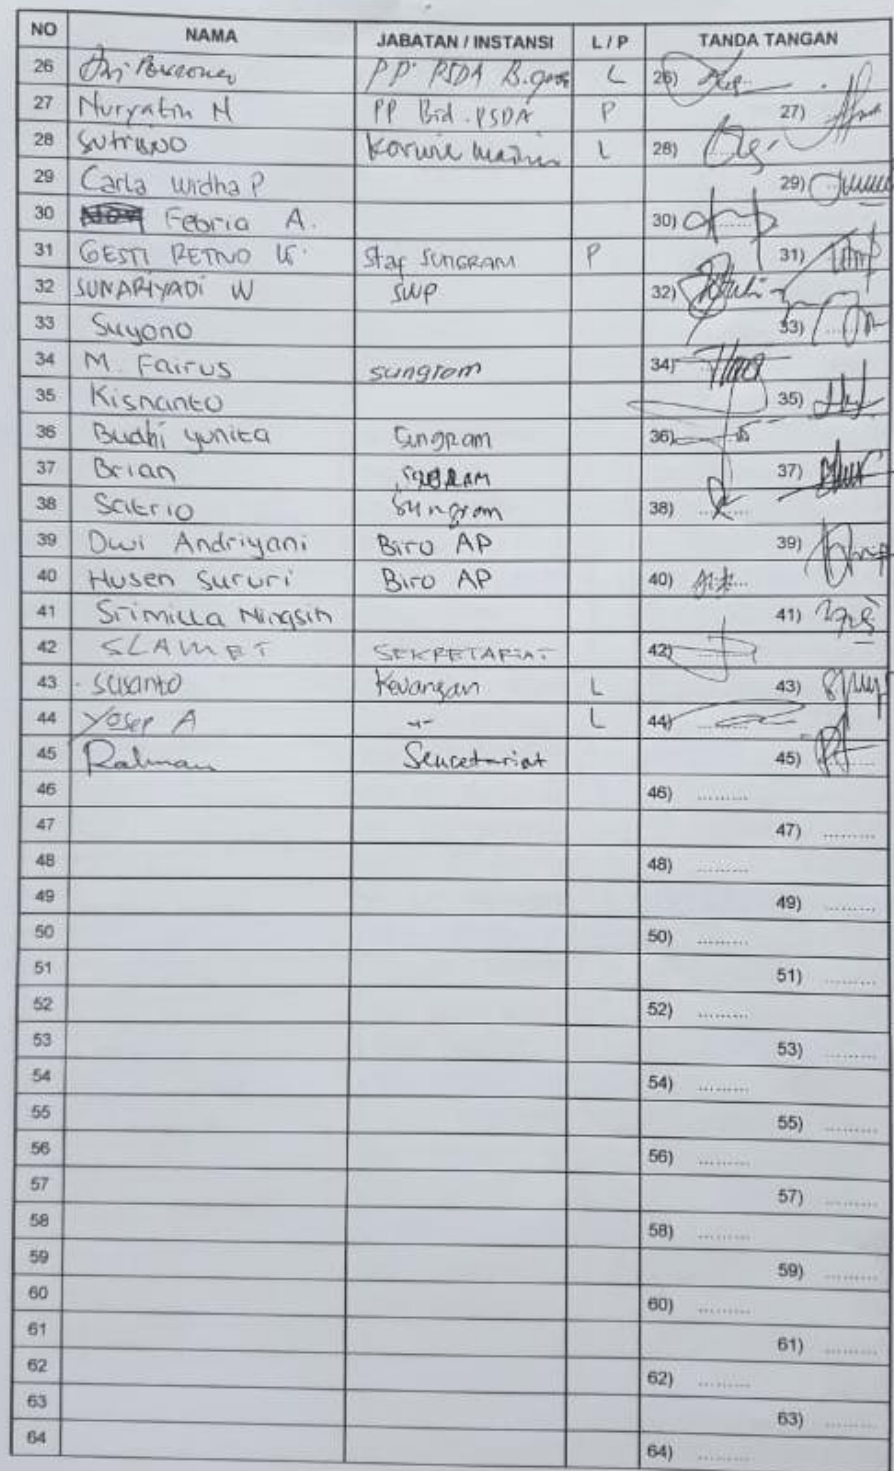 NO NAMA JABATAN / INSTANSI L / P TANDA TANGAN
26 PP. PSDA L 26)
27 Nuryatin N PP Bid. PSDA P 27)
28 Sutrisno L 28)
29 Carla Widha P 29)
30 Febria A. 30)
31 GESTI RETNO Staf SUNGRAM P 31)
32 SUNARIYADI W SWP 32)
33 Suyono 33)
34 M. Fairus sungram 34)
35 Kisnanto 35)
36 Budhi yunita Sungram 36)
37 Brian 37)
38 Satrio Sungram 38)
39 Dwi Andriyani Biro AP 39)
40 Husen Sururi Biro AP 40)
41 Srimilla Ningsih 41)
42 SLAMET SEKRETARIAT 42)
43 Susanto Keuangan L 43)
44 Yosep A -"- L 44)
45 Rahman 45)
46 46) .........
47 47) .........
48 48) .........
49 49) .........
50 50) .........
51 51) .........
52 52) .........
53 53) .........
54 54) .........
55 55) .........
56 56) .........
57 57) .........
58 58) .........
59 59) .........
60 60) .........
61 61) .........
62 62) .........
63 63) .........
64 64) .........